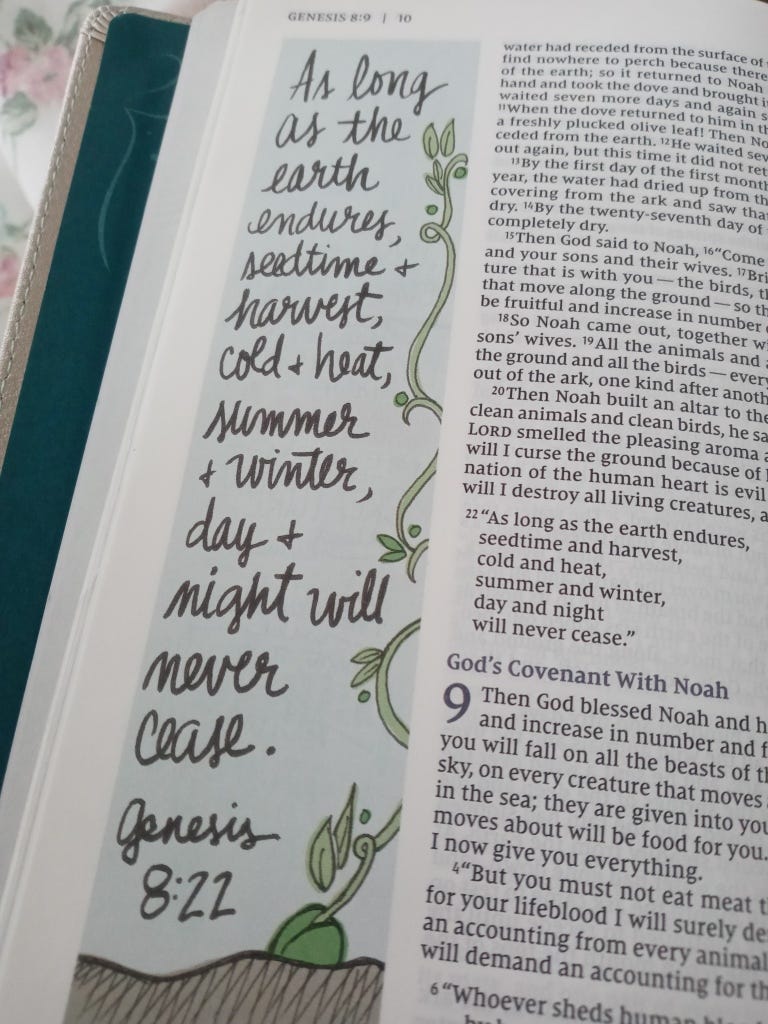 GENESIS 8:9 | 10
As long
as the
earth
endures,
seedtime +
harvest,
cold + heat,
summer
+ winter,
day +
night will
never
cease.
Genesis
8:22
water had receded from the surface of
find nowhere to perch because there
of the earth; so it returned to Noah
hand and took the dove and brought i
waited seven more days and again s
11When the dove returned to him in th
a freshly plucked olive leaf! Then No
ceded from the earth. 12He waited sev
out again, but this time it did not ret
13By the first day of the first month
year, the water had dried up from th
covering from the ark and saw that
dry. 14By the twenty-seventh day of
completely dry.
15Then God said to Noah, 16“Come
and your sons and their wives. 17Bri
ture that is with you — the birds, th
that move along the ground — so th
be fruitful and increase in number
18So Noah came out, together wi
sons’ wives. 19All the animals and
the ground and all the birds — every
out of the ark, one kind after anoth
20Then Noah built an altar to the
clean animals and clean birds, he sa
LORD smelled the pleasing aroma a
will I curse the ground because of
nation of the human heart is evil
will I destroy all living creatures, a
22“As long as the earth endures,
seedtime and harvest,
cold and heat,
summer and winter,
day and night
will never cease.”
God’s Covenant With Noah
9 Then God blessed Noah and h
and increase in number and f
you will fall on all the beasts of th
sky, on every creature that moves
in the sea; they are given into you
moves about will be food for you.
I now give you everything.
4“But you must not eat meat t
for your lifeblood I will surely de
an accounting from every animal
will demand an accounting for th
6“Whoever sheds human blo